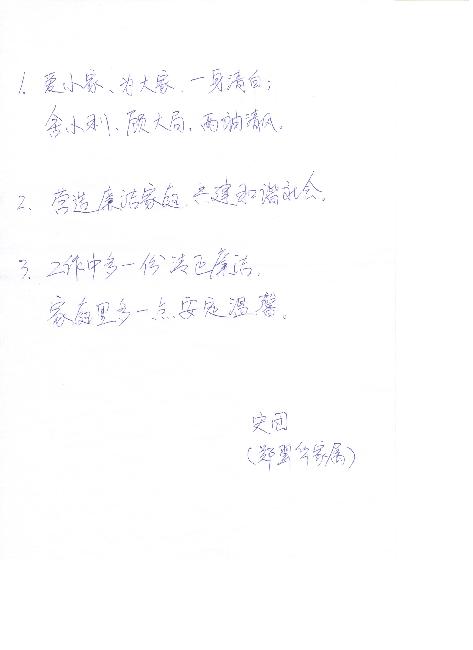 1. 爱小家、为大家,一身清白;
舍小利、顾大局,两袖清风。
2. 营造廉洁家庭,共建和谐社会。
3. 工作中多一份清正廉洁,
家庭里多一点安定温馨。
(郑 家属)